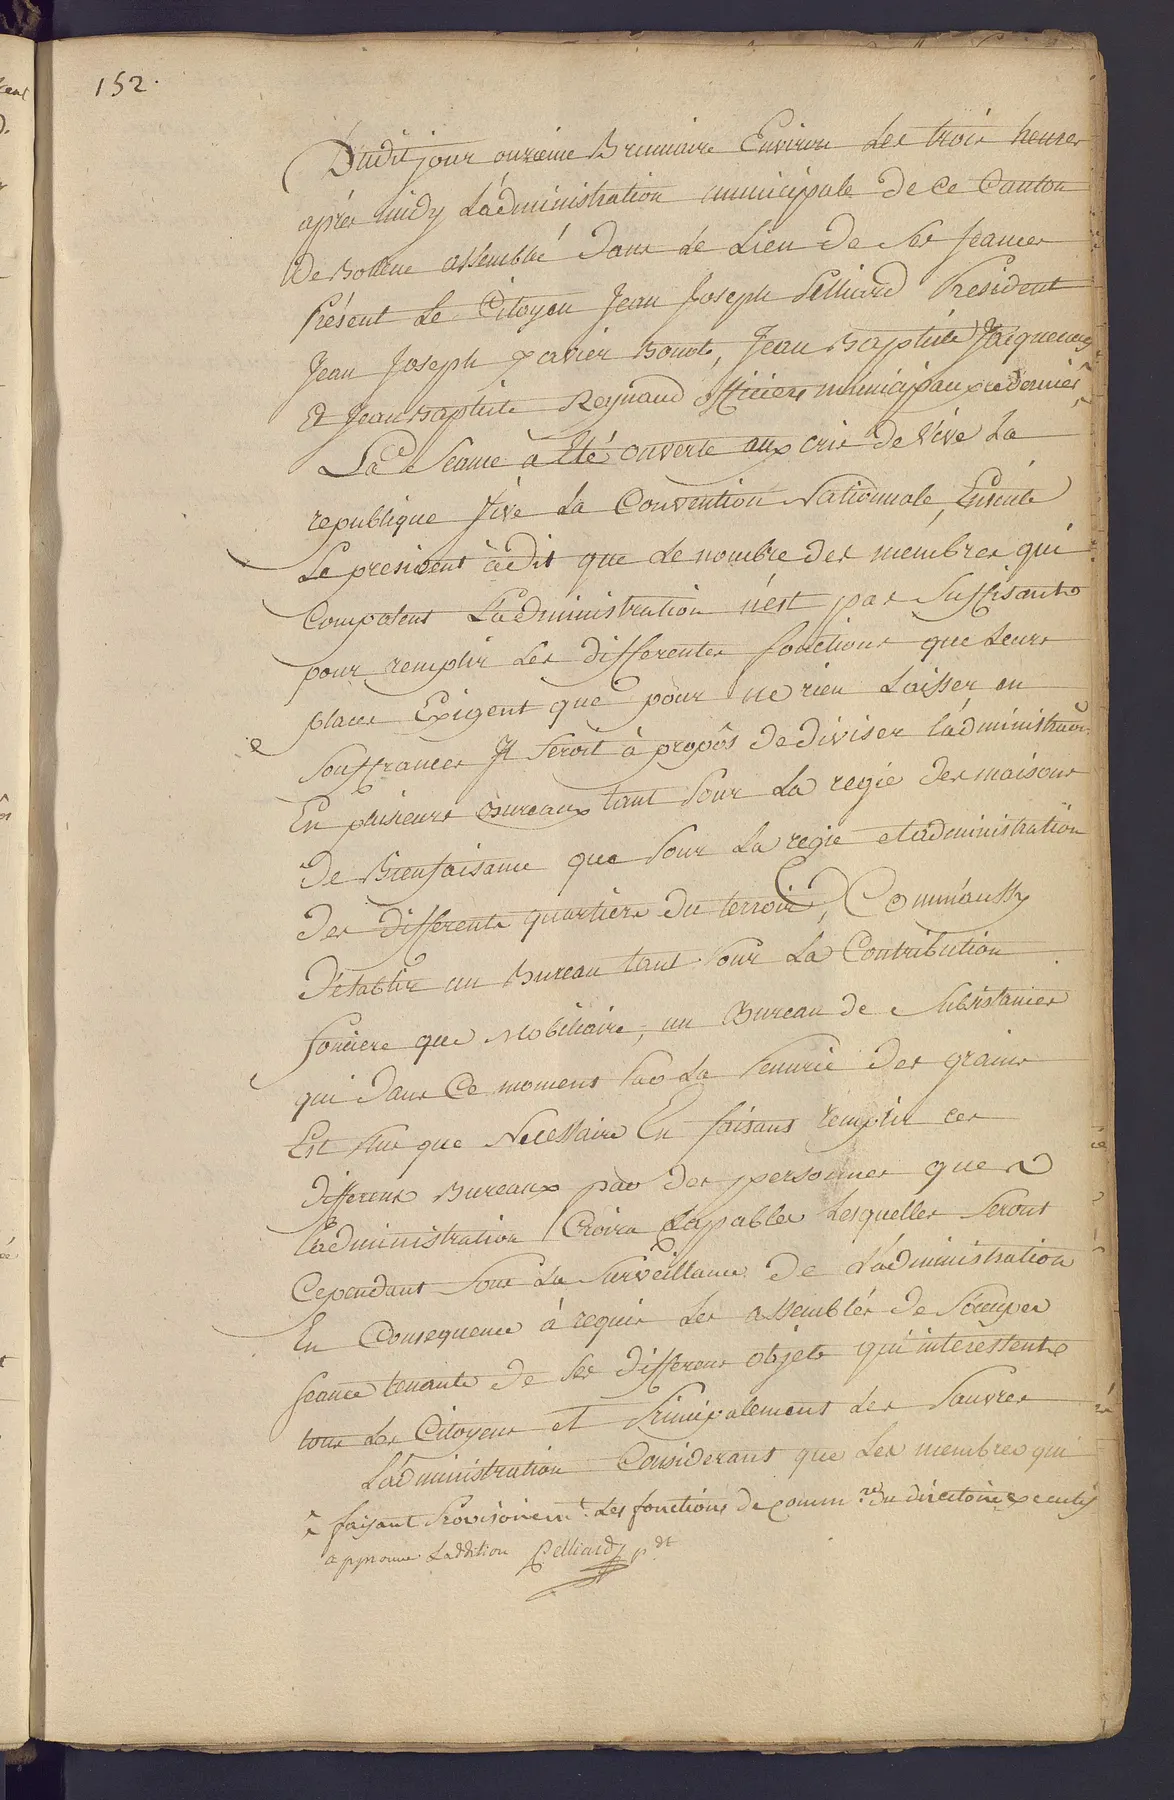 152.
Dudit jour onzieme Brumaire Environ Les trois heures
après midy L'administration municipale de ce Canton
de Bollene assemblé dans Le Lieu de Ses seances
Présent Le Citoyen Jean Joseph Pelliard President
Jean Joseph xavier Bonot, Jean Baptiste Jacquenet
Et Jean Baptiste Reynaud officiers municipaux ce dernier ^
La Seance à Eté ouverte aux cris de Vive La
republique Vive La Convention Nationnale, Ensuite
Le président à dit que Le nombre des membres qui
Composent L'administration n'est pas Suffisant
pour remplir Les differentes fonctions que Leurs
places Exigent que pour ne rien Laisser en
Souffrances Il Seroit à propôs de diviser l'administration
En plusieurs Bureaux tant Pour La regie des maisons
de Bienfaisance que Pour La regie et administration
des differents quartiers du terroir, Comm'aussy
d'établir un Bureau tant Pour La Contribution
fonciere que Mobiliaire, un Bureau de Subsistances
qui dans Ce moment Par La Penurie des grains
Est Plus que Necessaire En faisant remplir ces
differens Bureaux par des personnes que
L'administration Croira Capables Lesquelles Seront
Cependant Sous La Surveillance de L'administration
En Consequence à requis Les assemblés de S'occuper
seance tenante de Ses differens objets qui interessent
tous Les Citoyens et Principalement Les Pauvres
L'administration Considerant que Les membres qui
^ faisant Provisoirem.t Les fonctions de comm.re du directoire executif
approuvé L'addition Pelliard p.dt